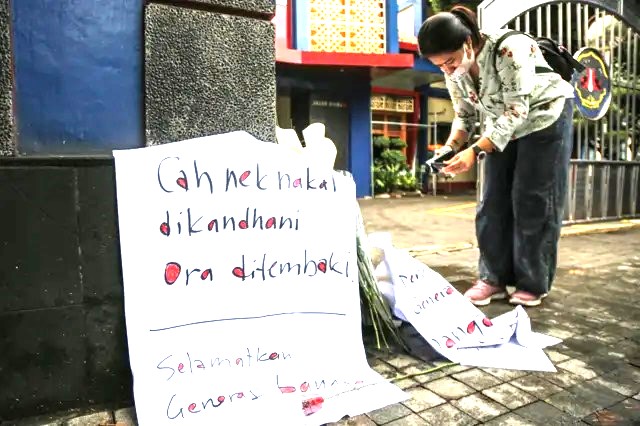 Cah nek nakal
dikandhani
Ora ditembaki
Selamatkan
Generas bangsa